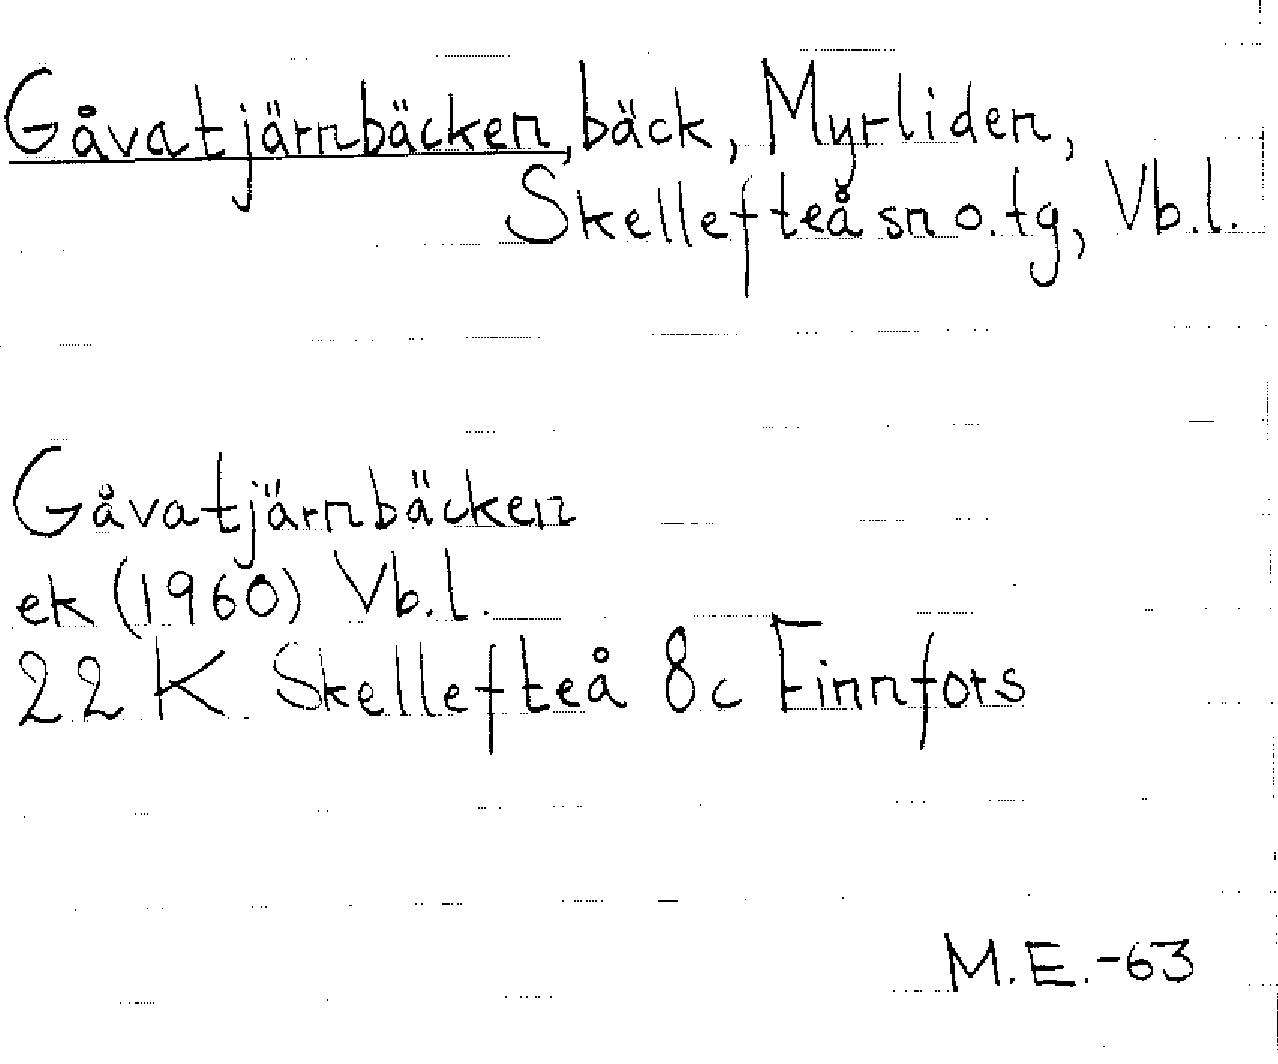 Gåvatjärnbäcken, bäck, Myrliden,
Skellefteå sn o. tg, Vb.l.
Gåvatjärnbäcken
ek (1960) Vb.l.
22 K Skellefteå 8c Finnfors
M.E.-63